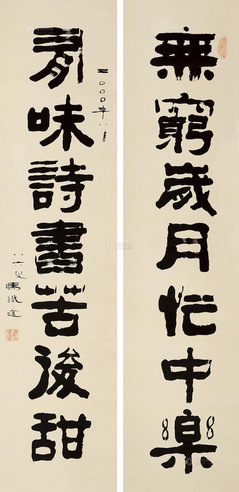 無窮歲月忙中樂
二〇〇〇年
有味詩書苦後甜
馬識途